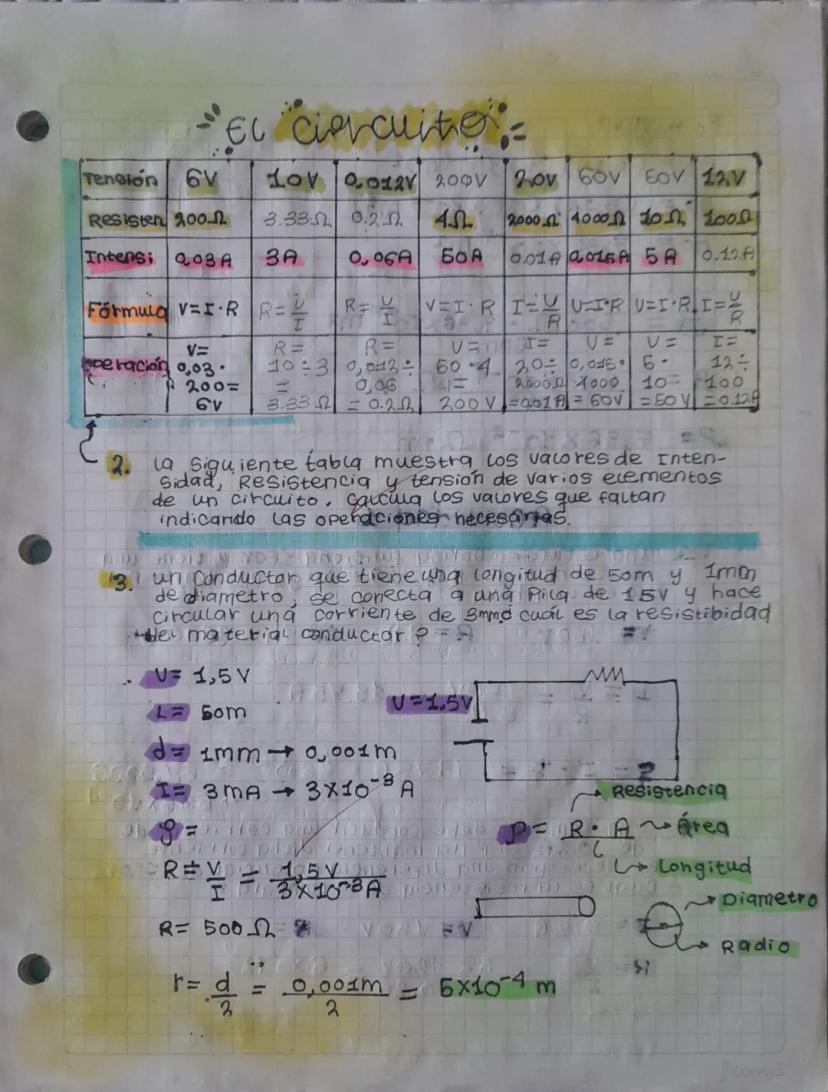 El circuito
Tensión 6V 10V 0,012V 200V 20V 60V 50V 12V
Resisten 200Ω 3.33Ω 0.2Ω 4Ω 2000Ω 4000Ω 10Ω 100Ω
Intensi 0,03A 3A 0,06A 50A 0.01A 0,015A 5A 0.12A
Fórmula V=I·R R=V/I R=V/I V=I·R I=V/R V=I·R V=I·R I=V/R
Operación V= R= R= V= I= V= V= I=
0,03· 10÷3 0,012÷ 50·4 20÷ 0,015· 5· 12÷
200= = 0,06 = 2000Ω 4000 10= 100
6V 3.33Ω =0.2Ω 200V =0.01A =60V =50V =0.12A
2. La siguiente tabla muestra los valores de Inten-
sidad, Resistencia y tensión de varios elementos
de un circuito, calcula los valores que faltan
indicando las operaciones necesarias.
3. un conductor que tiene una longitud de 50m y 1mm
de diametro, se conecta a una Pila de 1.5V y hace
circular una corriente de 3mmd cuál es la resistibidad
del material conductor?
V= 1,5V
L= 50m
V=1.5V
d= 1mm → 0,001m
I= 3mA → 3x10⁻³ A
Resistencia
ρ=
ρ= R·A/L Área
Longitud
R= V/I = 1,5V/3x10⁻³A
R= 500Ω
Diametro
Radio
r= d/2 = 0,001m/2 = 5x10⁻⁴ m